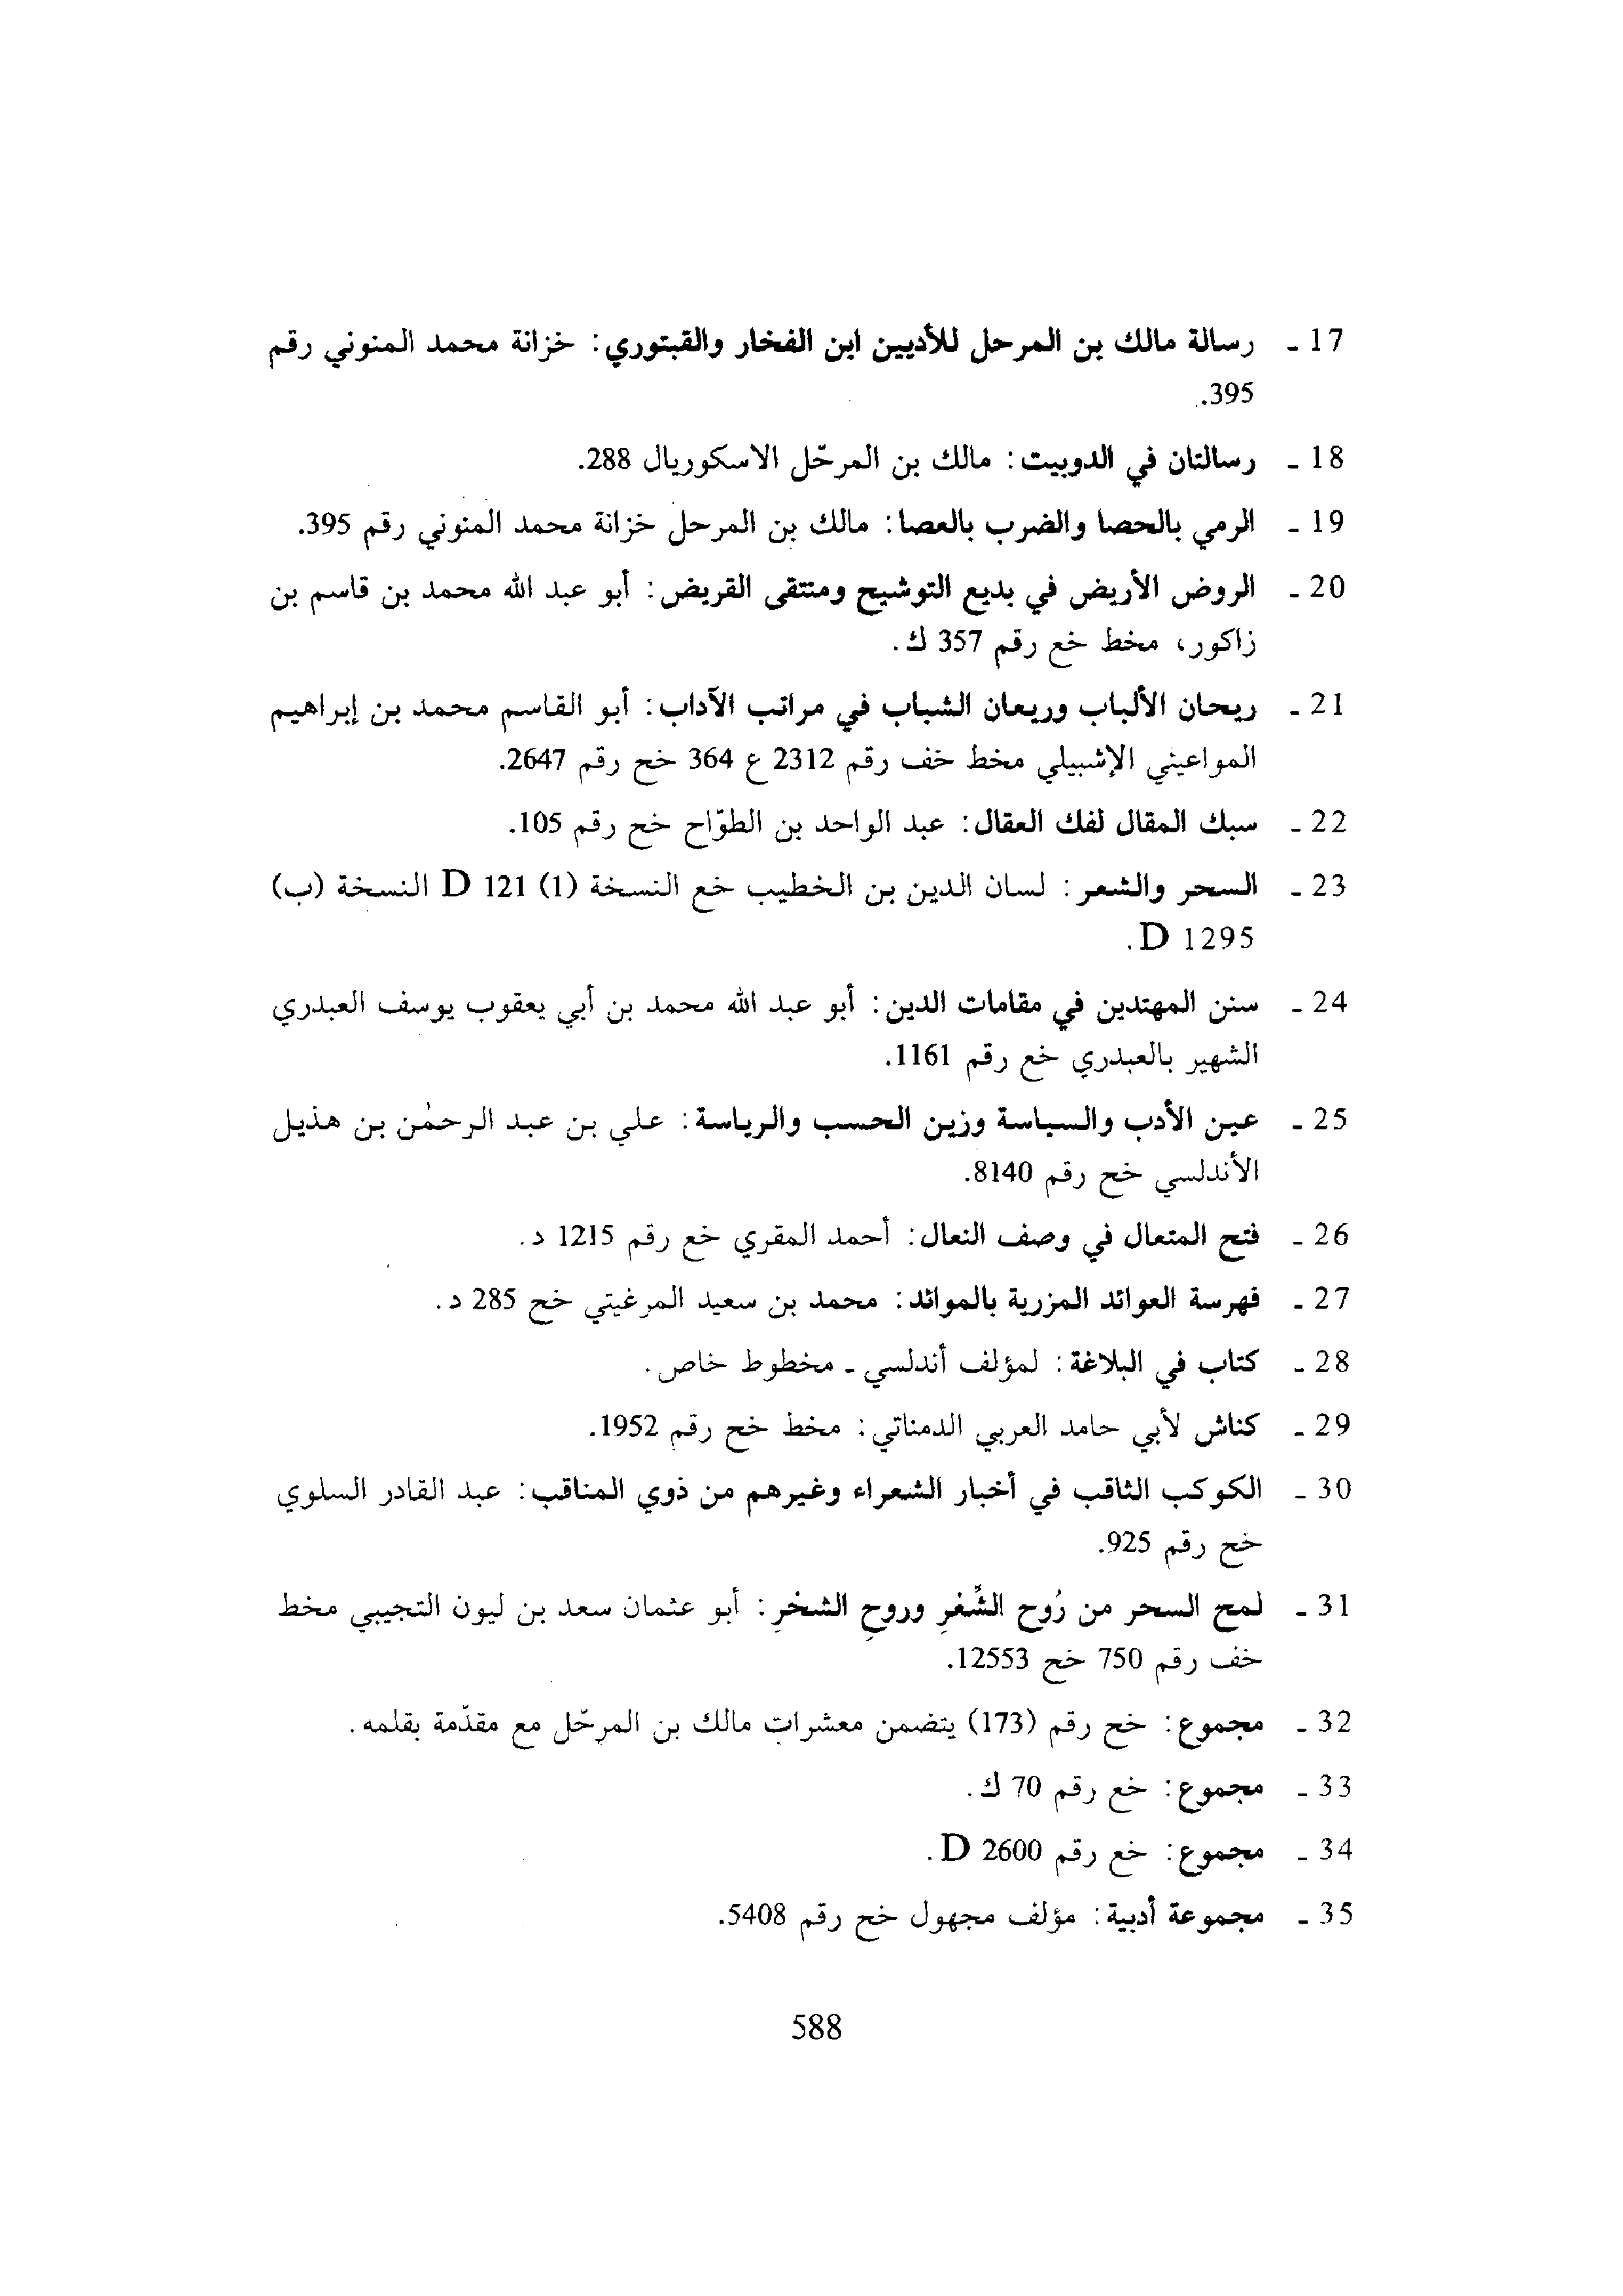 17 ـ رسالة مالك بن المرحل للأديبين ابن الفخار والقبتوري: خزانة محمد المنوني رقم
395.
18 ـ رسالتان في الدوبيت: مالك بن المرحّل الاسكوريال 288.
19 ـ الرمي بالحصا والضرب بالعصا: مالك بن المرحل خزانة محمد المنوني رقم 395.
20 ـ الروض الأريض في بديع التوشيح ومنتقى القريض: أبو عبد الله محمد بن قاسم بن
زاكور، مخط خع رقم 357 ك.
21 ـ ريحان الألباب وريعان الشباب في مراتب الآداب: أبو القاسم محمد بن إبراهيم
المواعيني الإشبيلي مخط خف رقم 2312 ع 364 خح رقم 2647.
22 ـ سبك المقال لفك العقال: عبد الواحد بن الطوّاح خح رقم 105.
23 ـ السحر والشعر: لسان الدين بن الخطيب خع النسخة (1) D 121 النسخة (ب)
D 1295.
24 ـ سنن المهتدين في مقامات الدين: أبو عبد الله محمد بن أبي يعقوب يوسف العبدري
الشهير بالعبدري خع رقم 1161.
25 ـ عين الأدب والسياسة وزين الحسب والرياسة: علي بن عبد الرحمٰن بن هذيل
الأندلسي خح رقم 8140.
26 ـ فتح المتعال في وصف النعال: أحمد المقري خع رقم 1215 د.
27 ـ فهرسة العوائد المزرية بالموائد: محمد بن سعيد المرغيتي خح 285 د.
28 ـ كتاب في البلاغة: لمؤلف أندلسي ـ مخطوط خاص.
29 ـ كناش لأبي حامد العربي الدمناتي: مخط خح رقم 1952.
30 ـ الكوكب الثاقب في أخبار الشعراء وغيرهم من ذوي المناقب: عبد القادر السلوي
خح رقم 925.
31 ـ لمح السحر من رُوح الشِّعْرِ وروحِ الشحْرِ: أبو عثمان سعد بن ليون التجيبي مخط
خف رقم 750 خح 12553.
32 ـ مجموع: خح رقم (173) يتضمن معشرات مالك بن المرحّل مع مقدّمة بقلمه.
33 ـ مجموع: خع رقم 70 ك.
34 ـ مجموع: خع رقم 2600 D.
35 ـ مجموعة أدبية: مؤلف مجهول خح رقم 5408.
588